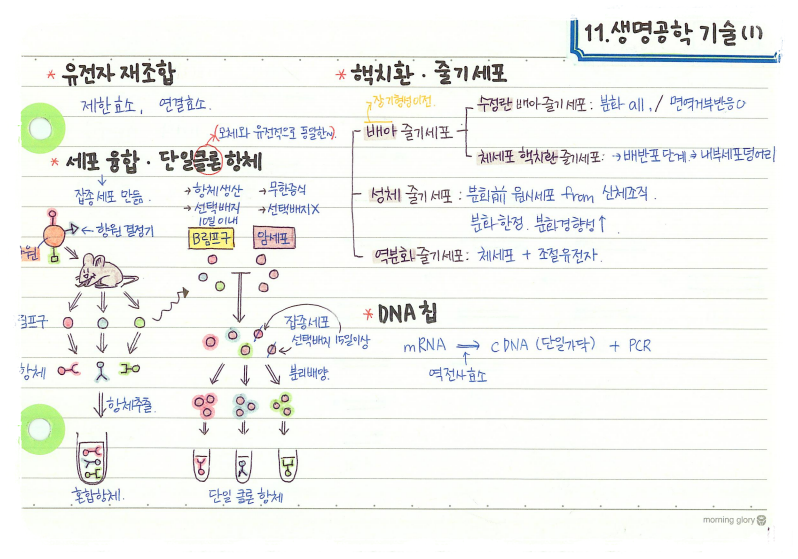 11.생명공학 기술(1)
* 유전자 재조합
제한효소, 연결효소.
(모체와 유전적으로 동일한~).
* 세포 융합 · 단일클론 항체
잡종세포 만듦.
→항체생산
→선택배지
10일이내
B림프구
→무한증식
→선택배지X
암세포
← 항원 결정기
항원
림프구
항체
항체추출.
혼합항체.
잡종세포
선택배지 15일이상
분리배양.
단일 클론 항체
* 핵치환 · 줄기세포
장기형성이전.
배아 줄기세포
수정란 배아 줄기세포: 분화 all, / 면역거부반응O
체세포 핵치환 줄기세포: → 배반포단계 → 내부세포덩어리
성체 줄기세포 : 분화前 원시세포 from 신체조직.
분화 한정. 분화경향성↑.
역분화 줄기세포: 체세포 + 조절유전자.
* DNA 칩
mRNA ⇒ cDNA (단일가닥) + PCR
역전사효소
morning glory